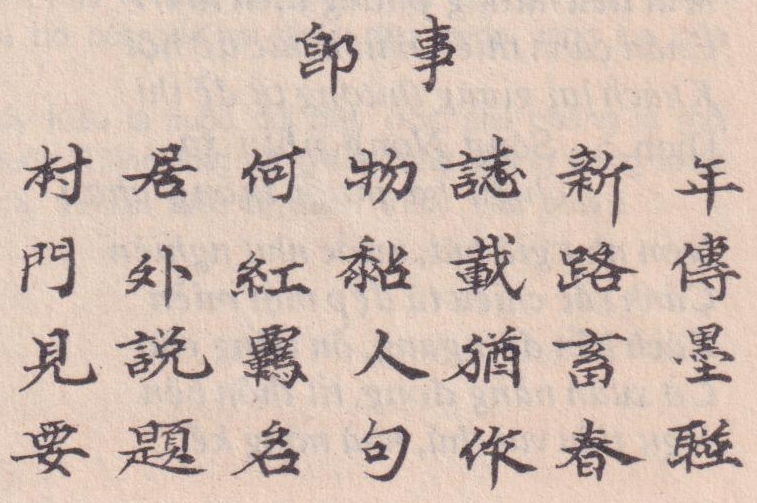 卽事
村居何物誌新年
門外紅黏載路傳
見說覊人猶畜墨
要題名句作春聯